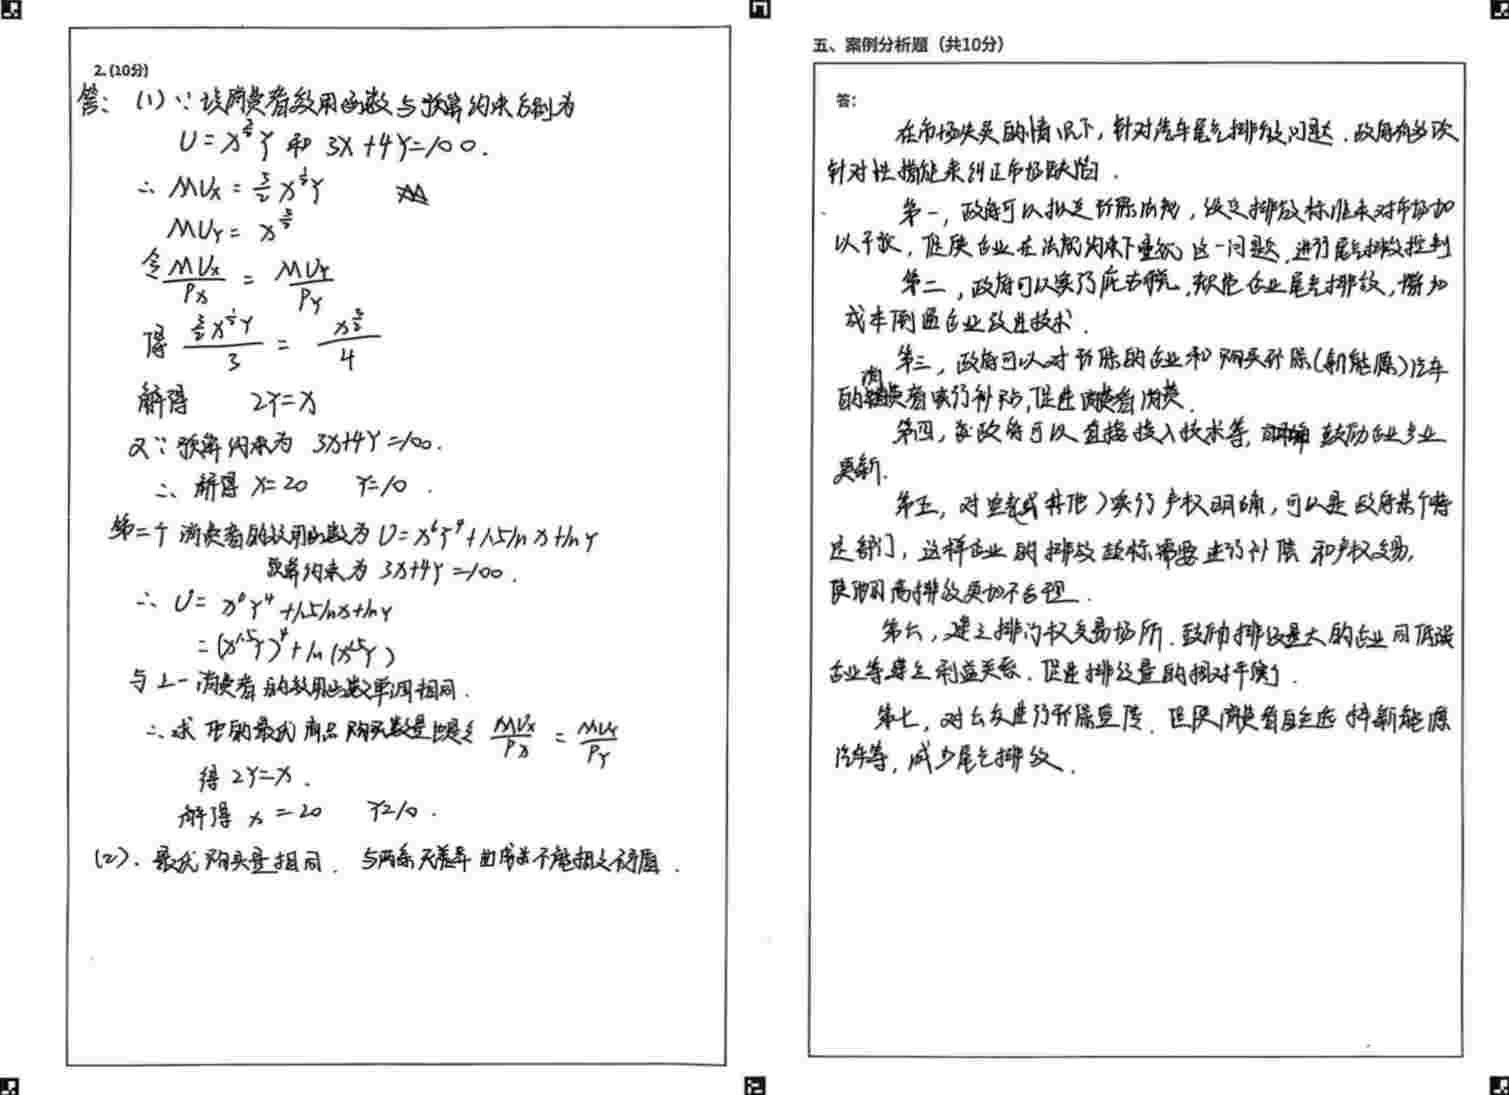 2.(10分)
答：(1)∵该消费者效用函数与预算约束分别为
U=X^{3/2}Y 和 3X+4Y=100.
∴ MUx = 3/2 X^{1/2}Y
MUY = X^{3/2}
令 MUx/Px = MUY/PY
得 (3/2 X^{1/2}Y)/3 = X^{3/2}/4
解得 2Y=X
又∵预算约束为 3X+4Y=100.
∴ 解得 X=20 Y=10.
第二个消费者的效用函数为 U=X^6Y^4+1.5lnX+lnY
预算约束为 3X+4Y=100.
∴ U= X^6Y^4+1.5lnX+lnY
=(X^{1.5}Y)^4+ln(X^{1.5}Y)
与上一消费者的效用函数单调相同.
∴求他的最优商品购买数量也是令 MUx/Px = MUY/PY
得 2Y=X.
解得 X=20 Y=10.
(2).最优购买量相同. 与两条无差异曲线不能相交
五、案例分析题（共10分）
答：
在市场失灵的情况下，针对汽车尾气排放问题.政府有多次
针对性措施来纠正市场缺陷.
第一，政府可以拟定环保法规，设定排放标准来对市场加
以干预，促使企业在法规约束下重视这一问题,进行尾气排放控制
第二，政府可以实行庇古税,企业尾气排放,增加
成本倒逼企业改进技术.
第三，政府可以对环保的企业和购买环保(新能源)汽车
的消费者实行补贴,促进消费者消费.
第四,政府可以直接投入技术等,鼓励企业
更新.
第五，对其他)实行产权明确,可以是政府某个特
定部门，这样企业的排放超标需要进行补偿和产权交易,
使得高排放更加不合理.
第六，建立排污权交易场所.鼓励排污量大的企业同低碳
企业等建立利益关系.促进排污量的相对平衡.
第七，对公众进行环保宣传.促使消费者自主选择新能源
汽车等,减少尾气排放.